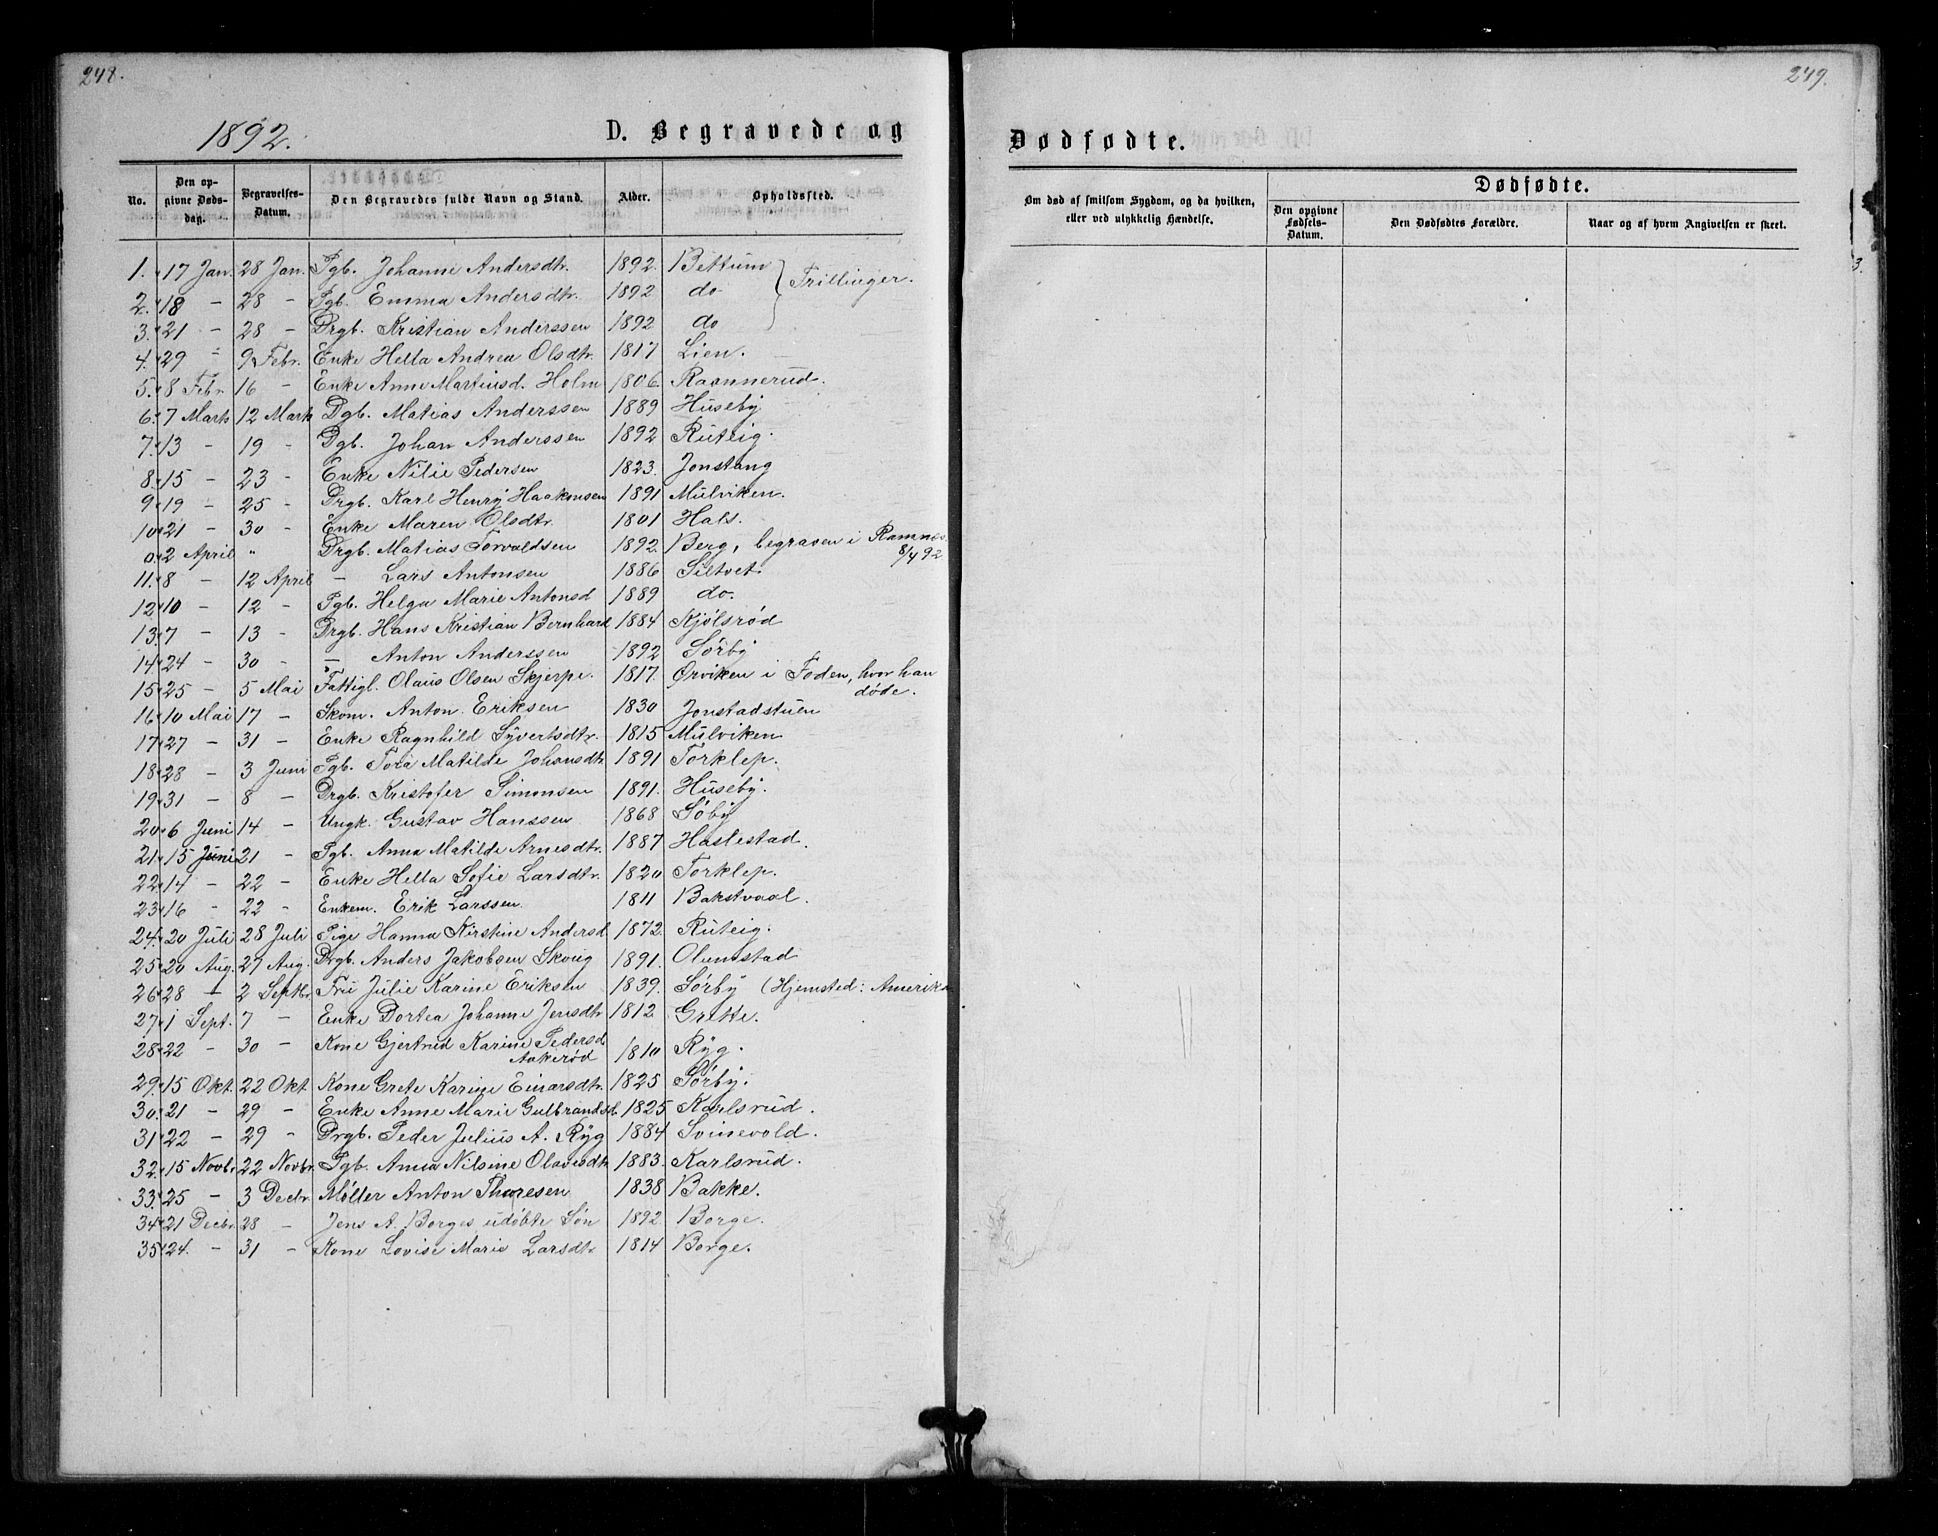 248.
1892.
D. Begravede og
No. | Den opgivne Dødsdag. | Begravelses-Datum. | Den Begravedes fulde Navn og Stand. | Alder. | Opholdssted.
1. 17 Jan. 28 Jan. Pgb. Johanne Andersdtr. 1892. Bettum } Trillinger.
2. 18 - 28 - Pgb. Emma Andersdtr. 1892 do
3. 21 - 28 - Drgb. Kristian Anderssen 1892 do
4. 29 - 9 Febr. Enke Hella Andrea Olsdtr. 1817 Lien.
5. 8 Febr. 16 - Enke Anne Martinsd. Holm 1806. Raannerud.
6. 7 Marts 12 Marts Dgb. Matias Anderssen 1889 Huseby
7. 13 - 19 - Dgb. Johan Anderssen 1892 Ruteig.
8. 15 - 23 - Enke Nilie Pedersen 1823. Jonstang
9. 19 - 25 - Drgb. Karl Henry Haakonsen 1891 Mulviken.
10. 21 - 30 - Enke Maren Olsdtr. 1801 Hals.
0. 2 April " Drgb. Matias Torvaldsen 1892. Berg, begraven i Ramnes
8/4 92
11. 8 - 12 April - Lars Antonsen 1886 Siltvet.
12. 10 - 12 - Pgb. Helga Marie Antonsd 1889 do.
13. 7 - 13 - Drgb. Hans Kristian Bernhard 1884 Kjølsrød
14. 24 - 30 - - Anton Anderssen 1892 Sørby
15. 25 - 5 Mai Fattigl. Olaus Olsen Skjerpe. 1817. Ørviken i Foden, hvor han
døde.
16. 10 Mai 17 - Skom. Anton Eriksen 1830 Jonstadstuen
17. 27 - 31 - Enke Ragnhild Syvertsdtr. 1815 Mulviken
18. 28 - 3 Juni Pgb. Tora Matilde Johansdtr 1891 Torklep.
19. 31 - 8 - Drgb. Kristofer Simonsen 1891. Huseby.
20. 6 Juni 14 - Ungk. Gustav Hanssen 1868 Søby
21. 15 Juni 21 - Pgb. Anna Matilde Arnesdtr. 1887 Haslestad.
22. 14 - 22 - Enke Hella Sofie Larsdtr. 1820 Torklep.
23. 16 - 22 - Enkem. Erik Larssen. 1811 Bakstvaal.
24. 20 Juli 28 Juli Pige Hanna Kirstine Andersd 1872. Ruteig.
25. 20 Aug. 27 Aug. Drgb. Anders Jakobsen Skoug 1891. Olumstad
26. 28 - 2 Septbr. Fru Julie Karine Eriksen 1839. Sørby (Hjemsted: Amerika
27. 1 Sept. 7 - Enke Dortea Johanne Jensdtr 1812 Grette.
28. 22 - 30 - Kone Gjertrud Karine Pedersd 1810 Ryg.
Aakerød
29. 15 Okt. 22 Okt. Kone Grete Karine Einarsdtr. 1825 Sørby.
30. 21 - 29 - Enke Anne Marie Gulbrandsd. 1825 Karlsrud.
31. 22 - 29 - Drgb. Peder Julius A. Ryg 1884 Svinevold.
32. 15 Novb. 22 Novbr. Pgb. Anna Nilsine Olavesdtr 1883. Karlsrud.
33. 25 - 3 Decbr. Møller Anton Thoresen 1838 Bakke.
34. 21 Decbr. 28 - Jens A. Borges udøbte Søn 1892. Borge.
35. 24. - 31 - Kone Lovise Marie Larsdtr 1814 Borge.
249.
Dødfødte.
Om død af smitsom Sygdom, og da hvilken, eller ved ulykkelig Hændelse.
Dødfødte.
Den opgivne Fødsels-Datum. | Den Dødfødtes Forældre. | Naar og af hvem Angivelsen er skeet.
3.